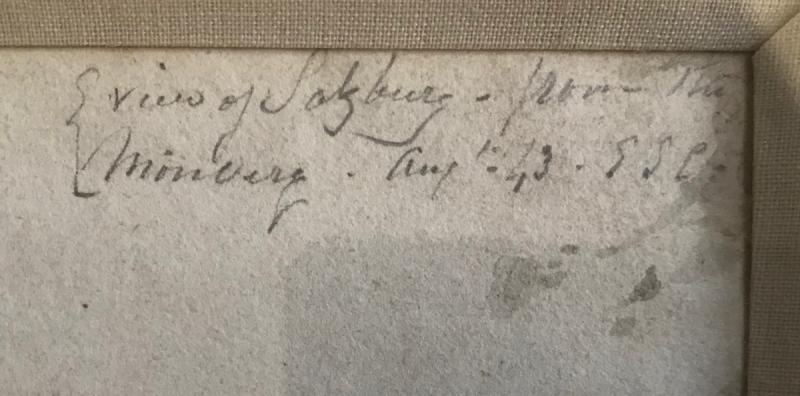 view of Salzburg - from the
Mönberg - Augt 43 - E S C